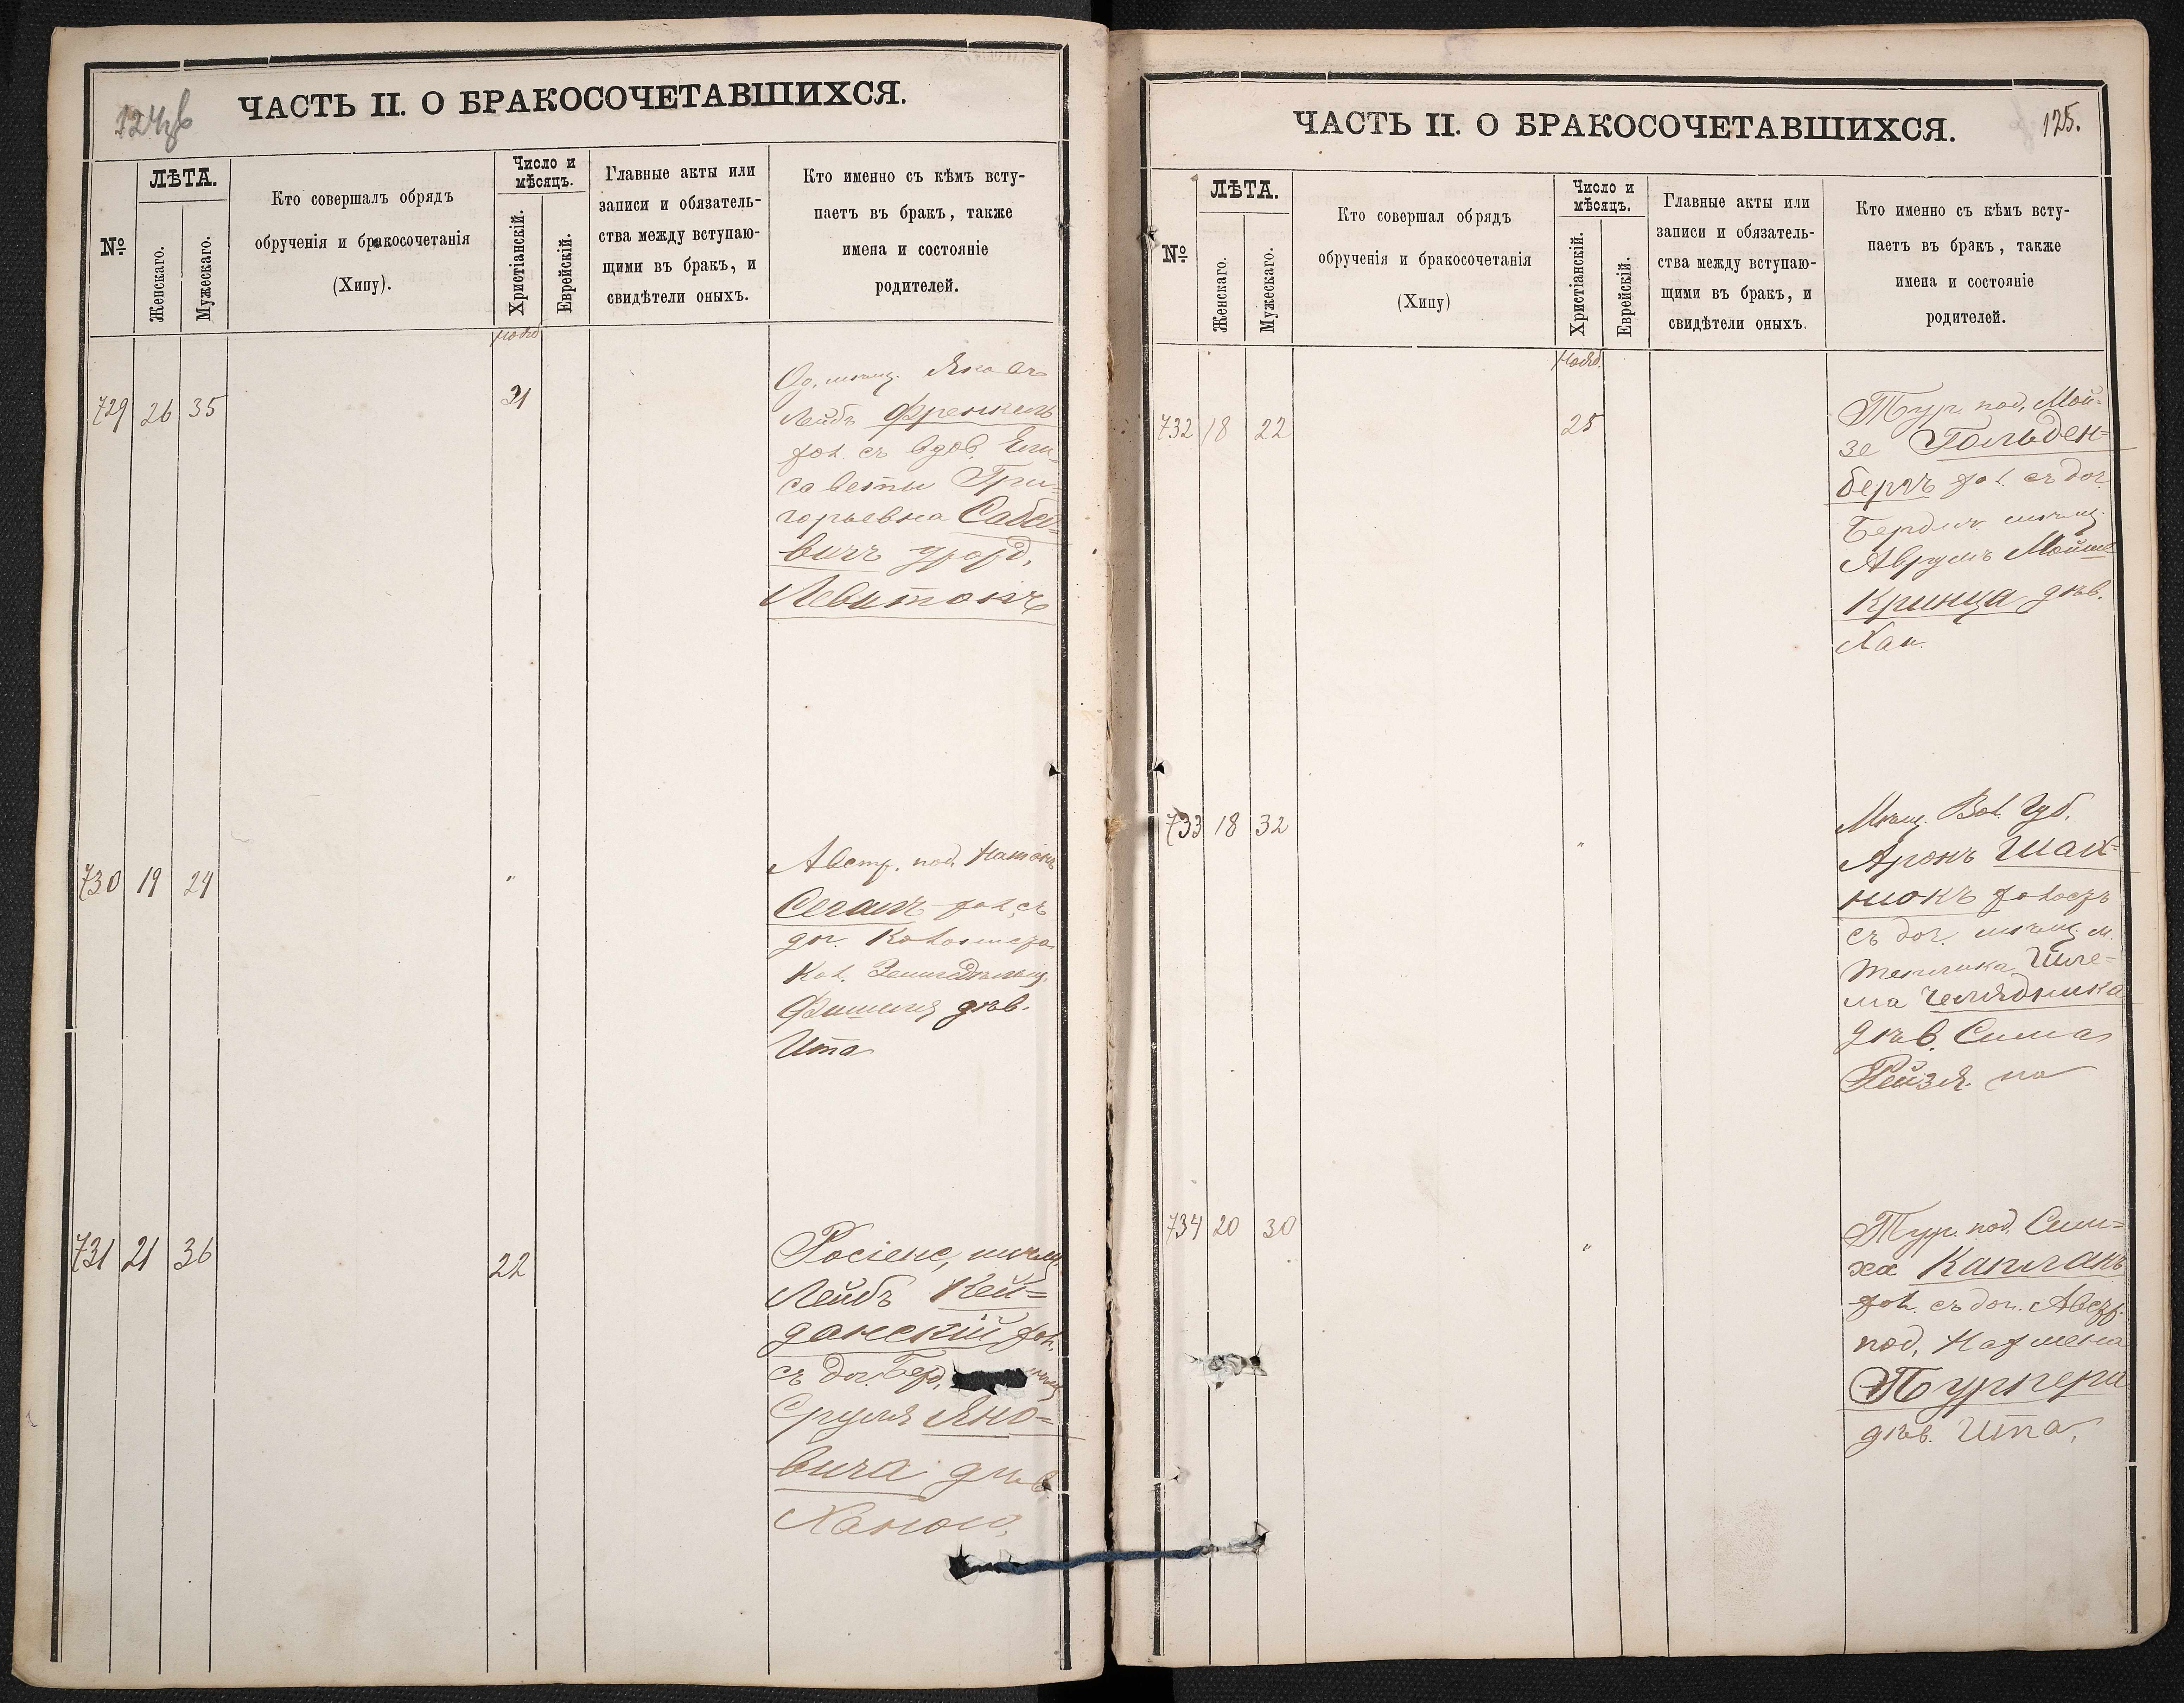 124об
ЧАСТЬ II. О БРАКОСОЧЕТАВШИХСЯ.
№
ЛѢТА.
Женскаго.
Мужескаго.
Кто совершалъ обрядъ
обрученія и бракосочетанія
(Хипу).
Число и
мѣсяцъ.
Христіанскій.
Еврейскій.
Главные акты или
записи и обязатель-
ства между вступаю-
щими въ бракъ, и
свидѣтели оныхъ.
Кто именно съ кѣмъ всту-
паетъ въ бракъ, также
имена и состояніе
родителей.
Нояб
729 26 35 21
Од. мѣщ.
Лейбъ Френкель
хол. съ вдов. Ели-
саветы Гри-
горьевна Сабсо-
вичъ урожд.
Левитонъ
730 19 24 "
Австр. под. Натанъ
Сегалъ хол. съ
доч.
кол.
Фишеля дѣв.
Ита
731 21 36 22
Росіенс, мѣщ.
Лейбъ Кей-
данскій хол.
съ доч. Берд. мѣщ
Сруля Яно-
вича дѣв
Ханою,
125.
ЧАСТЬ II. О БРАКОСОЧЕТАВШИХСЯ.
№
ЛѢТА.
Женскаго.
Мужескаго.
Кто совершал обрядъ
обрученія и бракосочетанія
(Хипу)
Число и
мѣсяцъ.
Христіанскій.
Еврейскій.
Главные акты или
записи и обязатель-
ства между вступаю-
щими въ бракъ, и
свидѣтели оныхъ.
Кто именно съ кѣмъ всту-
паетъ въ бракъ, также
имена и состояніе
родителей.
Нояб.
732 18 22 25
Тур. под. Мой-
зе Гольден-
бергъ хол. съ доч.
Бердич. мѣщ.
Аврумъ Мойше
Кринца дѣв.
Хан.
733 18 32 "
Мѣщ. Вол. Губ.
Аронъ Шай-
нюкъ холост
съ доч. мѣщ. м.
Теплика Шле-
ма Челядника
дѣв. Сима
Рейзя
734 20 30 "
Тур. под. Сим-
ха Капланъ
хол. съ доч. Австр.
под. Нахмена
Турнера
дѣв. Ита,